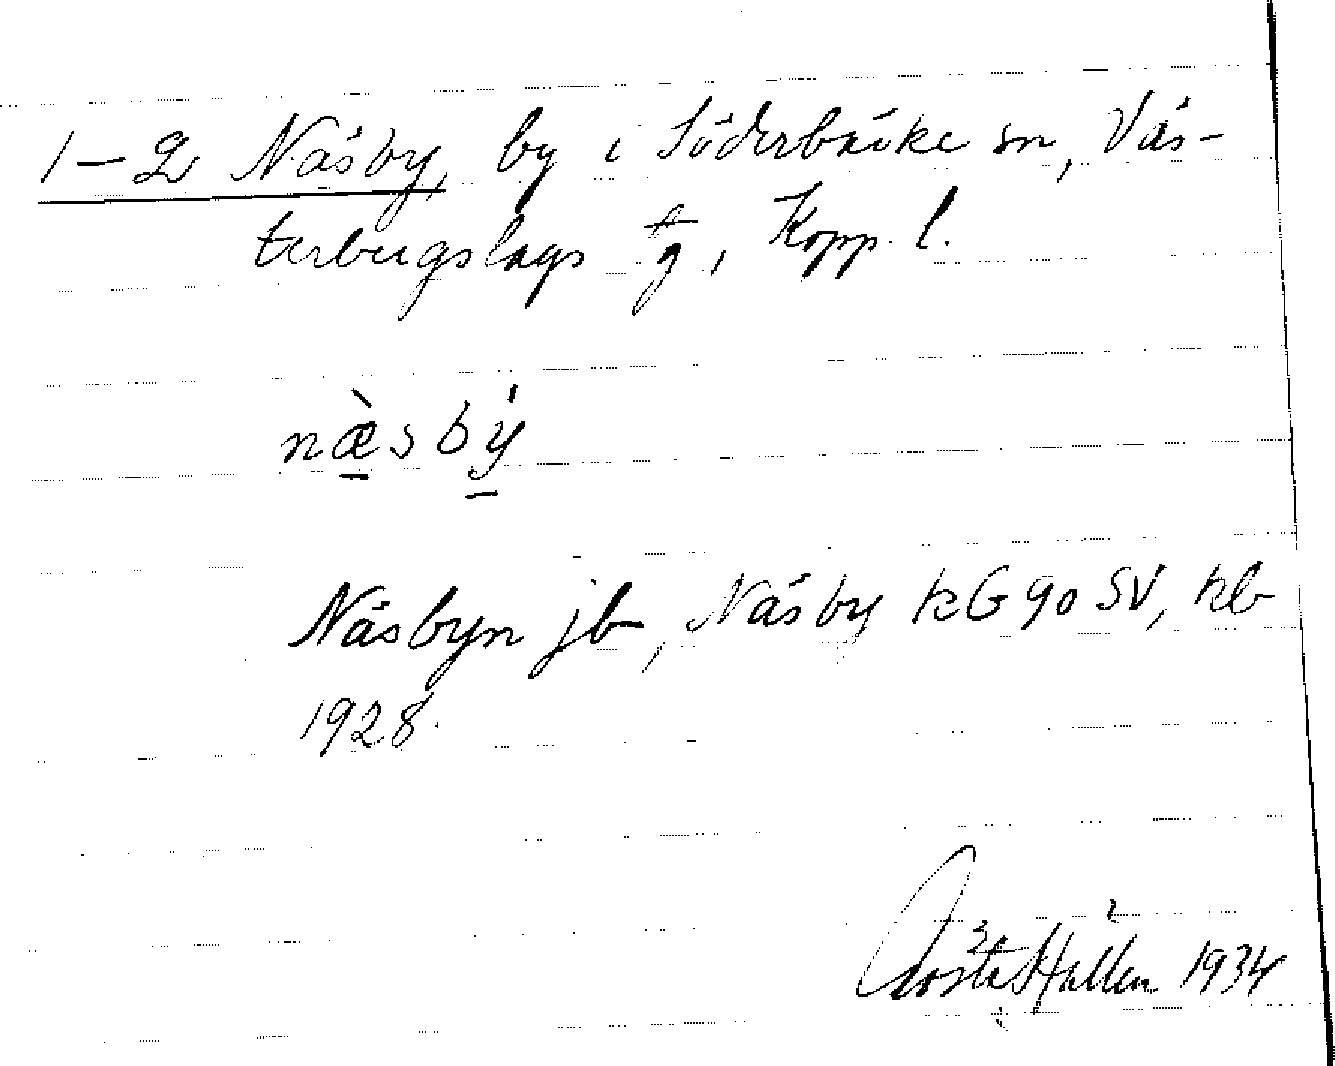 1–2 Näsby, by i Söderbärke sn, Väs-
terbergslags tg, Kopp. l.
næ̀sbý
Näsbyn jb, Näsby kG 90 SV, kb
1928.
Gösta Hallén 1934